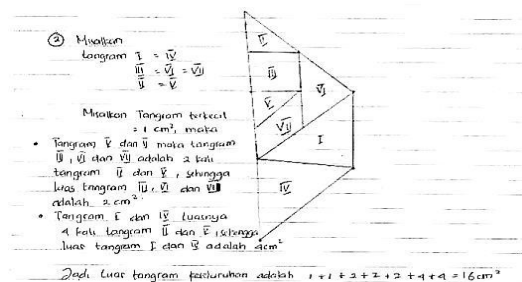 ② Misalkan
tangram I = IV
III = VI = VII
II = V
Misalkan Tangram terkecil
= 1 cm², maka
• Tangram V dan II maka tangram
III, VI dan VII adalah 2 kali
tangram II dan V, sehingga
luas tangram III, VI dan VII
adalah 2 cm².
• Tangram I dan IV luasnya
4 kali tangram II dan V, sehingga
luas tangram I dan IV adalah 4cm²
Jadi luas tangram keseluruhan adalah 1+1+2+2+2+4+4=16cm²
II
III
VI
V
VII
I
IV